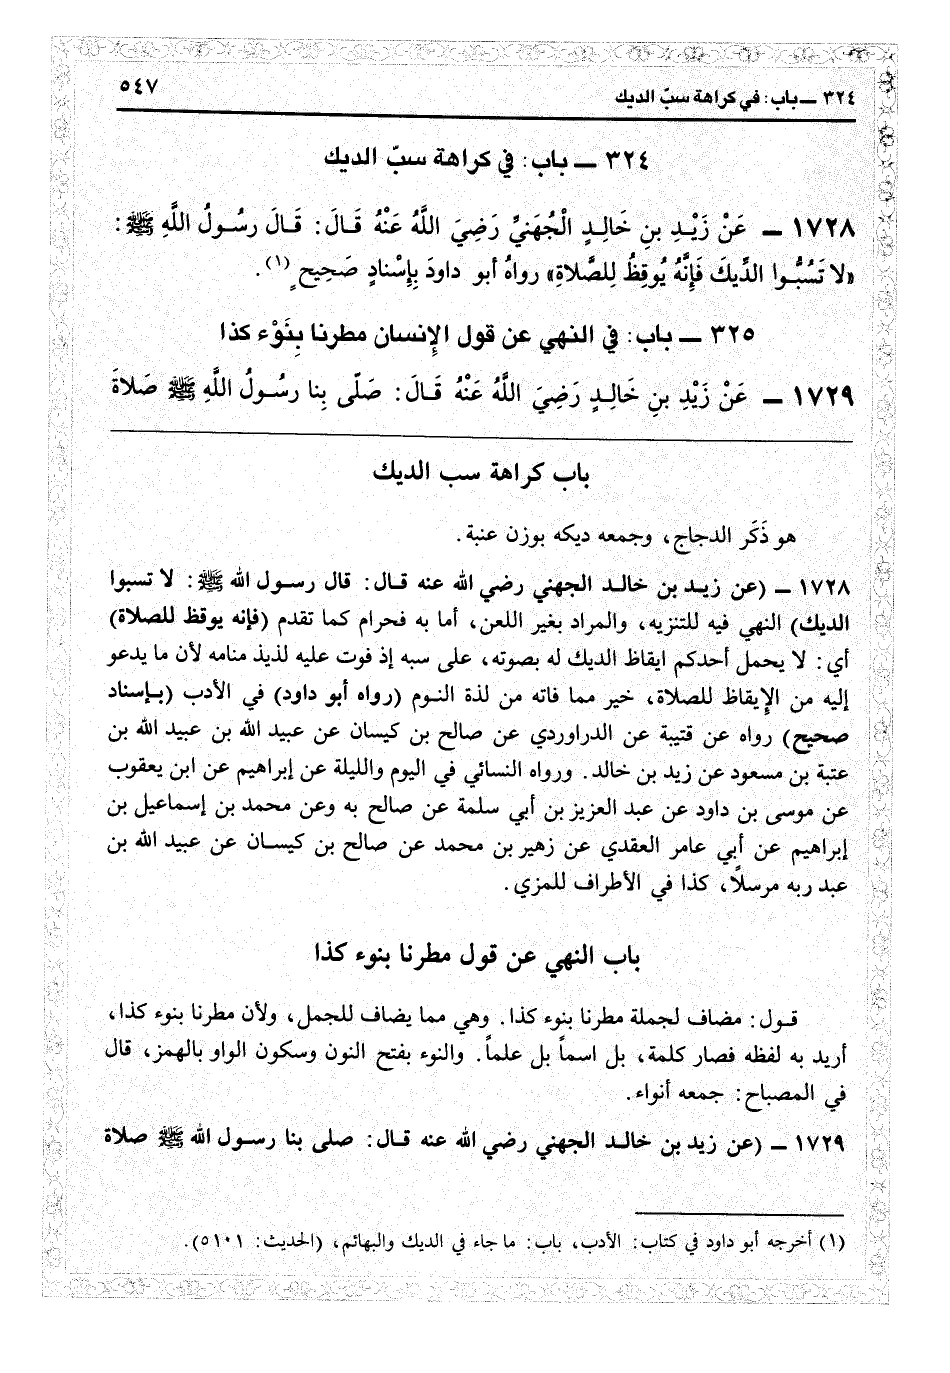 ٣٢٤ ــ باب: في كراهة سبّ الديك
٥٤٧
٣٢٤ ــ باب: في كراهة سبّ الديك
١٧٢٨ ــ عَنْ زَيْدِ بنِ خَالِدٍ الْجُهَنيِّ رَضِيَ اللَّهُ عَنْهُ قَالَ: قَالَ رسُولُ اللَّهِ ﷺ:
«لا تَسُبُّوا الدِّيكَ فَإِنَّهُ يُوقِظُ لِلصَّلاةِ» رواهُ أبو داودَ بِإِسْنادٍ صَحِيحٍ(١).
٣٢٥ ــ باب: في النهي عن قول الإِنسان مطرنا بِنَوْء كذا
١٧٢٩ ــ عَنْ زَيْدِ بنِ خَالِدٍ رَضِيَ اللَّهُ عَنْهُ قَالَ: صَلّى بِنا رسُولُ اللَّهِ ﷺ صَلاةَ
باب كراهة سب الديك
هو ذَكَر الدجاج، وجمعه ديكه بوزن عنبة.
١٧٢٨ ــ (عن زيد بن خالد الجهني رضي الله عنه قال: قال رسول الله ﷺ: لا تسبوا
الديك) النهي فيه للتنزيه، والمراد بغير اللعن، أما به فحرام كما تقدم (فإنه يوقظ للصلاة)
أي: لا يحمل أحدكم ايقاظ الديك له بصوته، على سبه إذ فوت عليه لذيذ منامه لأن ما يدعو
إليه من الإِيقاظ للصلاة، خير مما فاته من لذة النوم (رواه أبو داود) في الأدب (بإسناد
صحيح) رواه عن قتيبة عن الدراوردي عن صالح بن كيسان عن عبيد الله بن عبيد الله بن
عتبة بن مسعود عن زيد بن خالد. ورواه النسائي في اليوم والليلة عن إبراهيم عن ابن يعقوب
عن موسى بن داود عن عبد العزيز بن أبي سلمة عن صالح به وعن محمد بن إسماعيل بن
إبراهيم عن أبي عامر العقدي عن زهير بن محمد عن صالح بن كيسان عن عبيد الله بن
عبد ربه مرسلاً، كذا في الأطراف للمزي.
باب النهي عن قول مطرنا بنوء كذا
قول: مضاف لجملة مطرنا بنوء كذا. وهي مما يضاف للجمل، ولأن مطرنا بنوء كذا،
أريد به لفظه فصار كلمة، بل اسماً بل علماً. والنوء بفتح النون وسكون الواو بالهمز، قال
في المصباح: جمعه أنواء.
١٧٢٩ ــ (عن زيد بن خالد الجهني رضي الله عنه قال: صلى بنا رسول الله ﷺ صلاة
(١) أخرجه أبو داود في كتاب: الأدب، باب: ما جاء في الديك والبهائم، (الحديث: ٥١٠١).